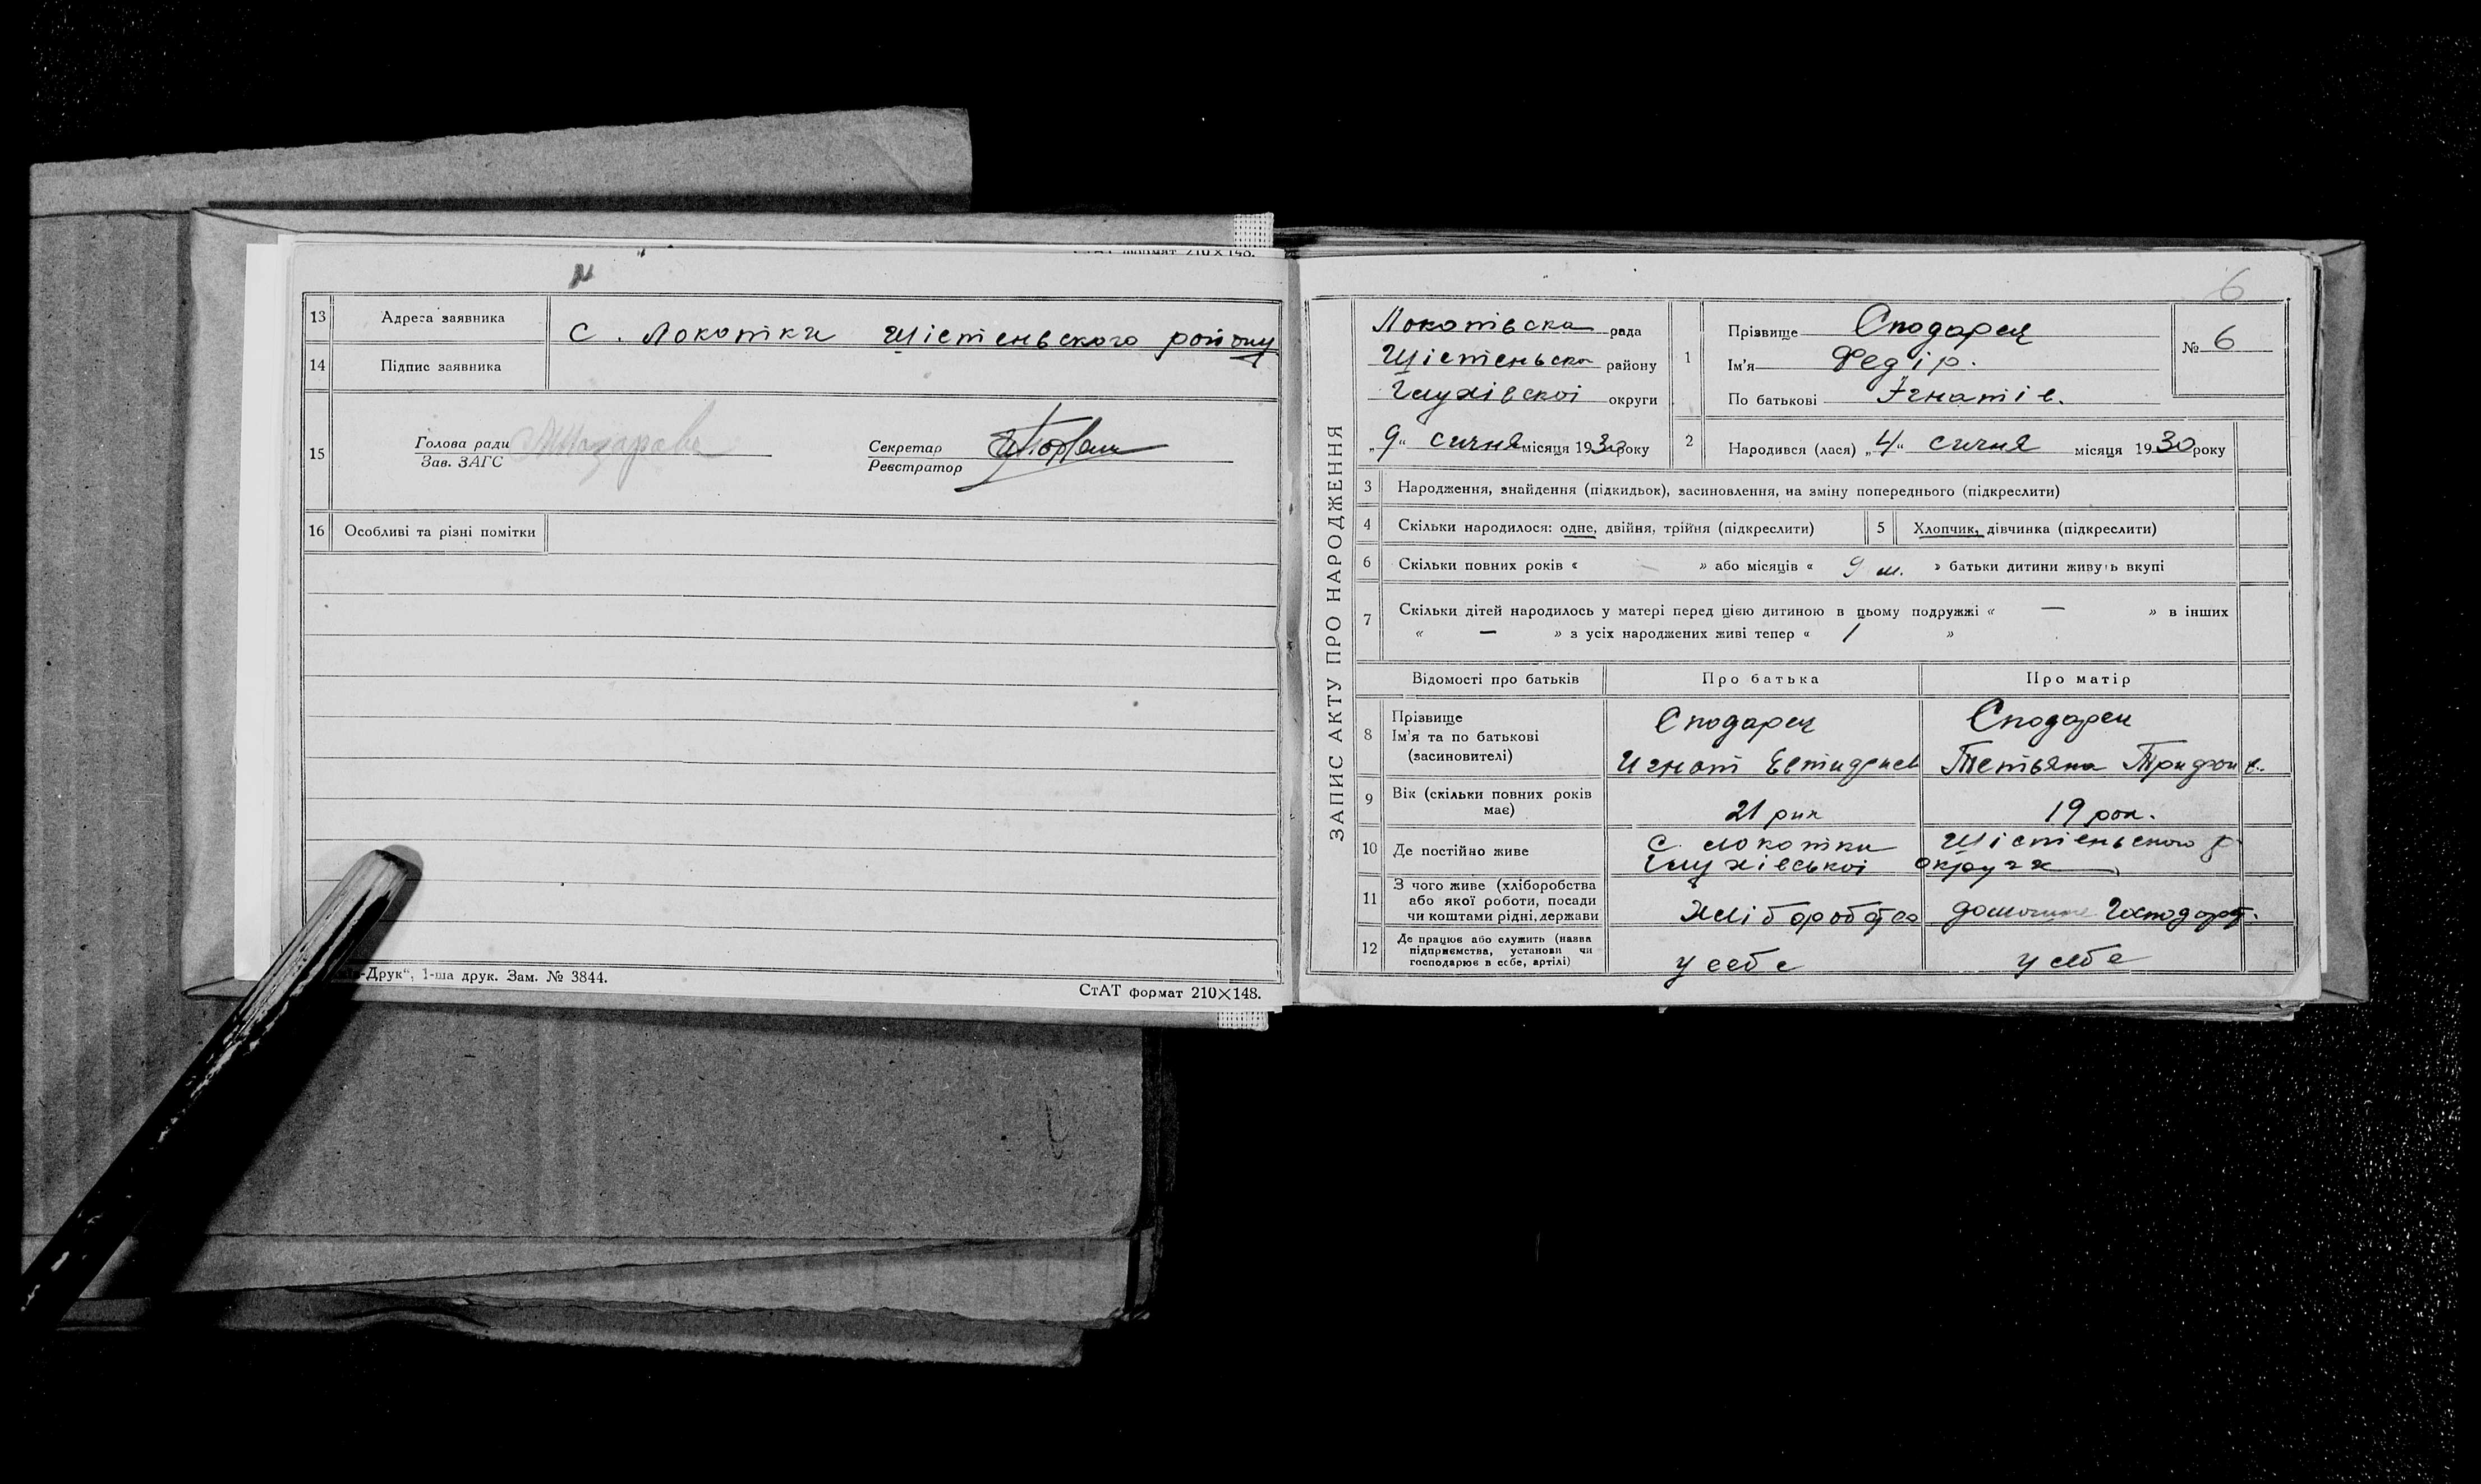 СтАТ формат 210×148.
13 Адреса заявника
с. Локотки Шістеньского району
14 Підпис заявника
15 Голова ради
Зав. ЗАГС
Секретар
Реєстратор
16 Особливі та різні помітки
-Друк“, 1-ша друк. Зам. № 3844.
СтАТ формат 210×148.
6
ЗАПИС АКТУ ПРО НАРОДЖЕННЯ
Локотівська рада
Шістеньська району
Глухівскої округи
„9“ січня місяця 1930 року
1 Прізвище Сподарец
Ім'я Федір.
По батькові Ігнатів.
№ 6
2 Народився (лася) „4“ січня місяця 1930 року
3 Народження, знайдення (підкидьок), засиновлення, на зміну попереднього (підкреслити)
4 Скільки народилося: одне, двійня, трійня (підкреслити) 5 Хлопчик, дівчинка (підкреслити)
6 Скільки повних років « — » або місяців « 9 м. » батьки дитини живуть вкупі
7 Скільки дітей народилось у матері перед цією дитиною в цьому подружжі « — » в інших
« — » з усіх народжених живі тепер « 1 »
Відомості про батьків Про батька Про матір
8 Прізвище
Ім'я та по батькові
(засиновителі)
Сподарец
Игнат
Сподарец
Тетьяна Трифон в.
9 Вік (скільки повних років
має)
21 рик
19 рок.
10 Де постійно живе
с. Локотки Шістеньского р
Глухівської округи
11 З чого живе (хліборобства
або якої роботи, посади
чи коштами рідні, держави
Хліборобство
домашне Господарст.
12 Де працює або служить (назва
підприємства, установи чи
господарює в себе, артілі)
у себе
у себе